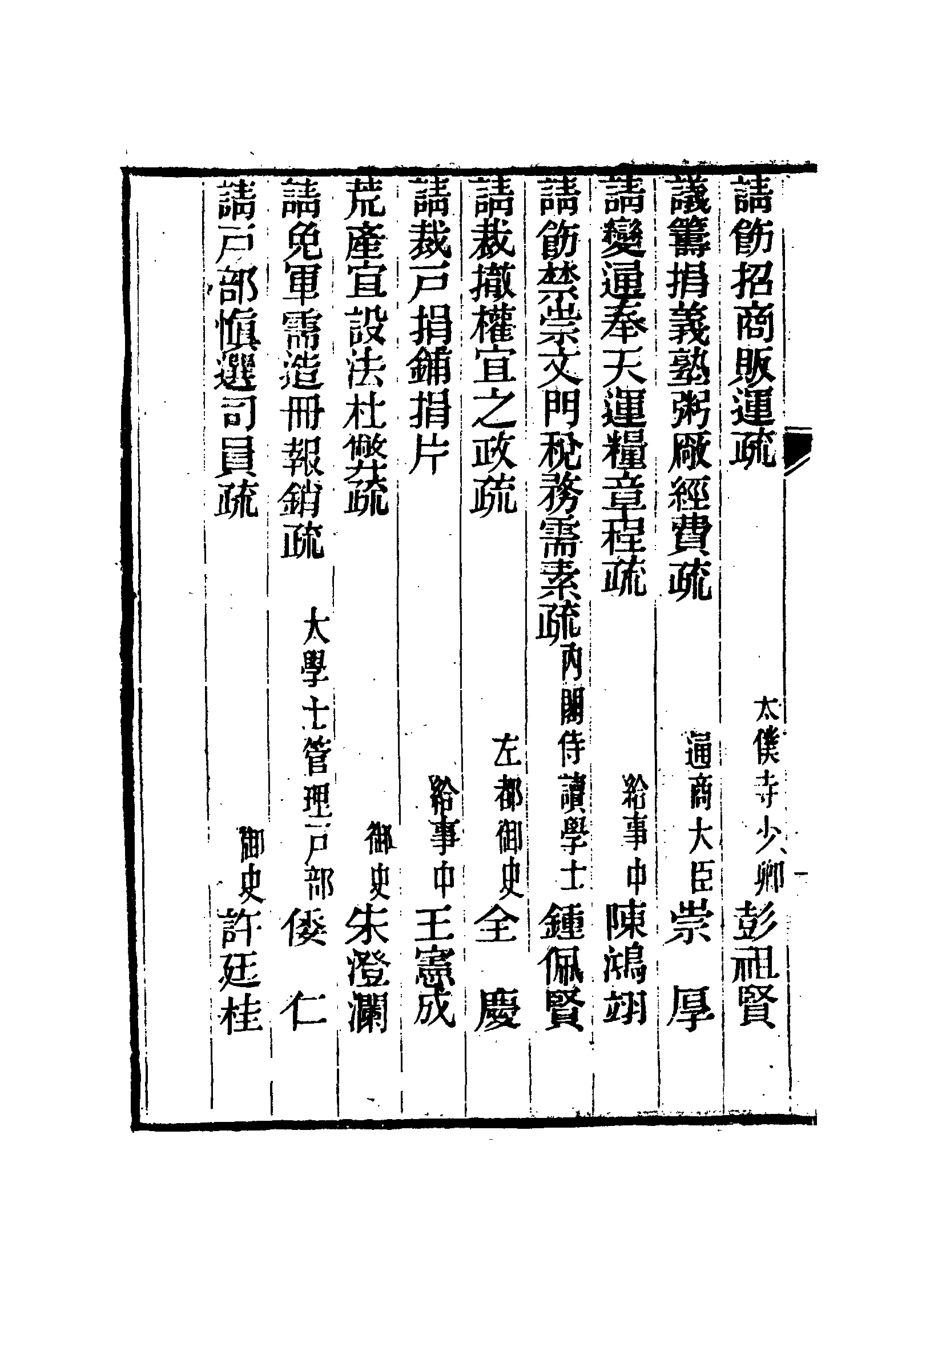 請飭招商販運疏　太僕寺少卿彭祖賢
議籌捐義塾粥廠經費疏　通商大臣崇厚
請變通奉天運糧章程疏　給事中陳鴻翊
請飭禁崇文門稅務需素疏　內閣侍讀學士鍾佩賢
請裁撤權宜之政疏　左都御史全慶
請裁戶捐鋪捐片　給事中王憲成
荒產宜設法杜弊疏　御史朱澄瀾
請免軍需造冊報銷疏　大學士管理戶部倭仁
請戶部慎選司員疏　御史許廷桂